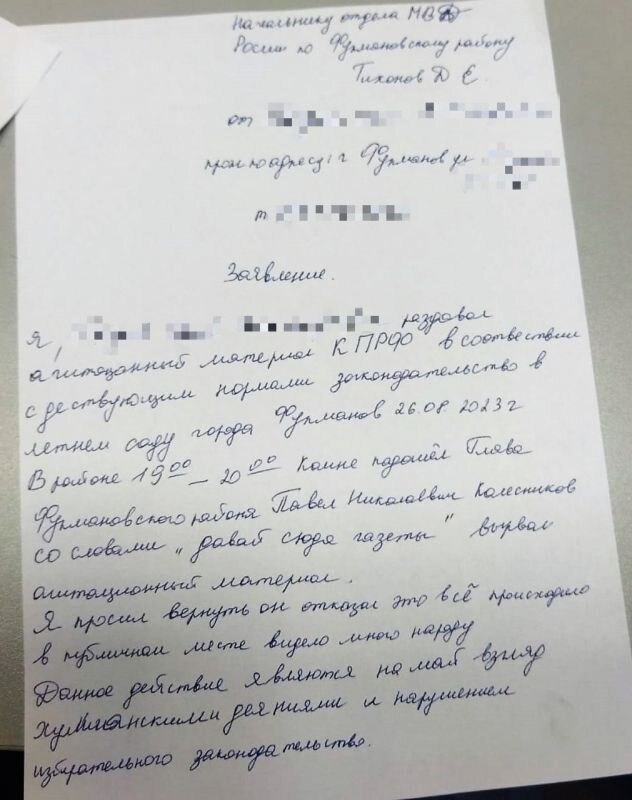 Начальнику отдела МВД
Росии по Фурмановскому району
Тихонов Д Е.
от
прож по адресу: г Фурманов ул
т
Заявление.
Я, раздавал
агитационный материал КПРФ в соотвествии
с дествующим нормами законодательство в
летнем саду города Фурманов 26.08.2023 г
В районе 19 00 – 20 00 Комне подошёл Глава
Фурмановского района Павел Николаевич Колесников
со словами „давай сюда газеты" вырвал
агитационный материал.
Я просил вернуть он отказал это всё происходило
в публичном месте видело много народу
Данное действие являются на мой взгляд
хулиганскими деяниями и нарушением
избирательного законодательство.